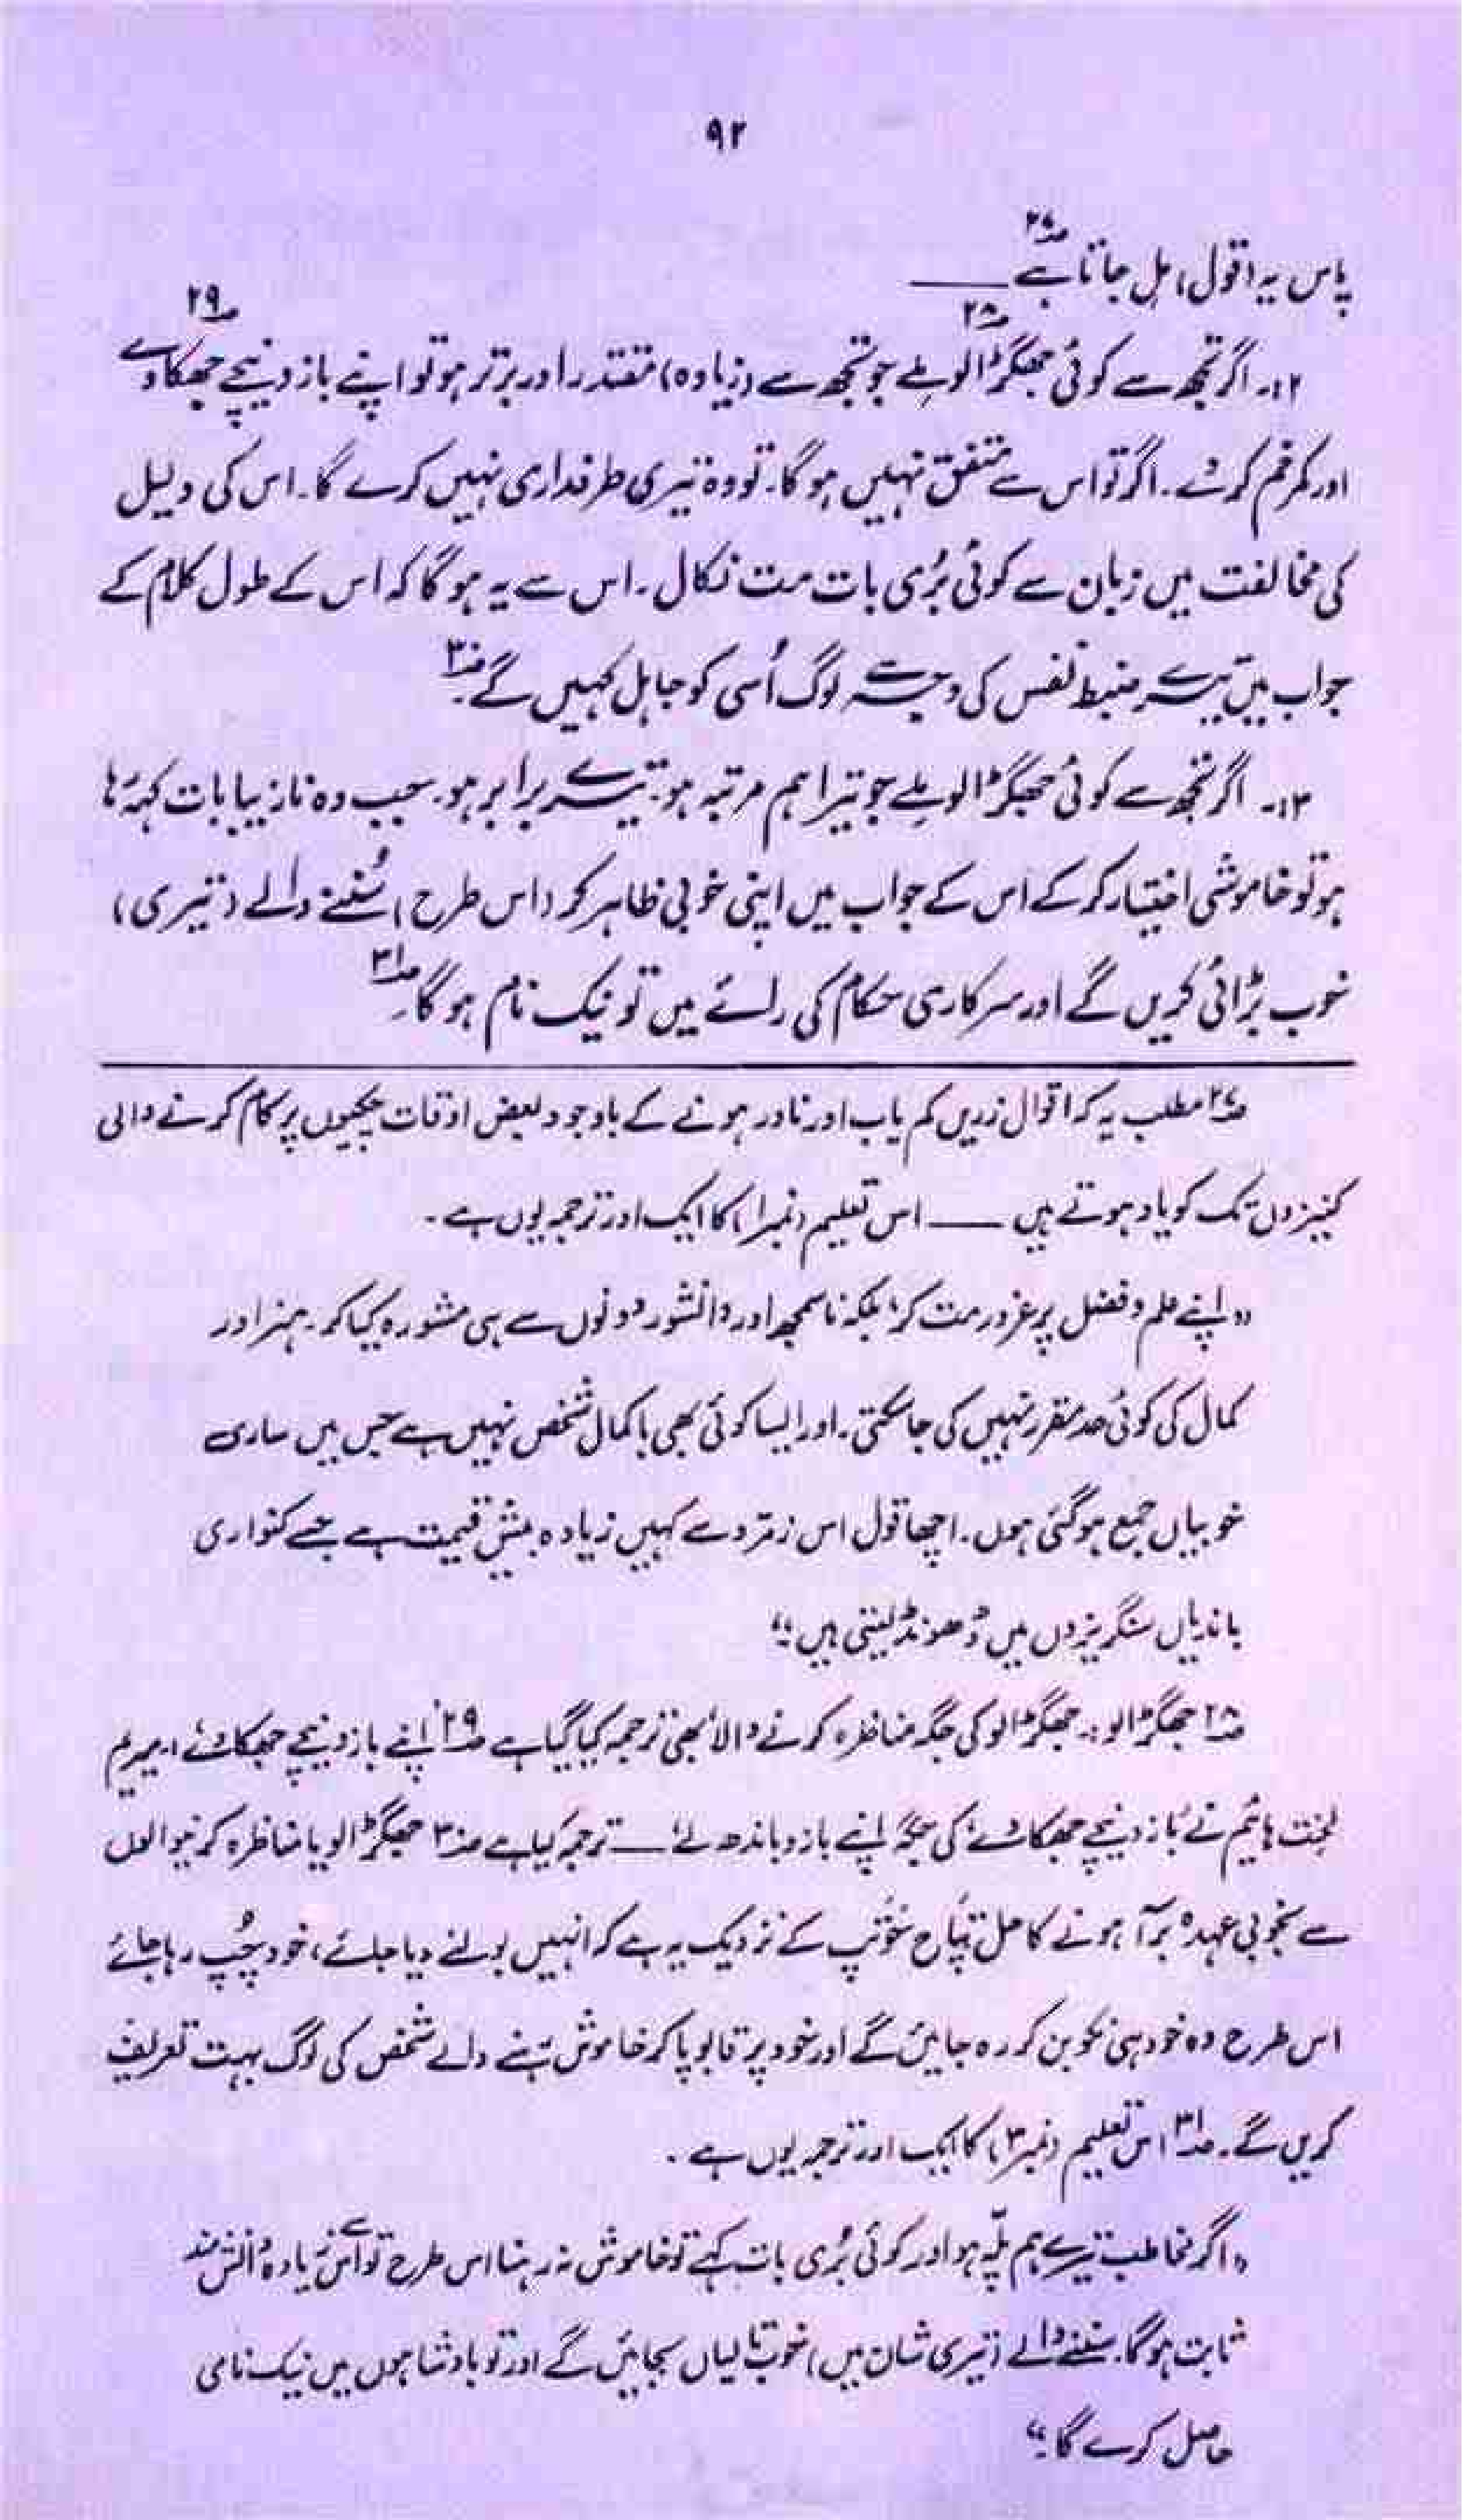 ۹۲
پاس یہ (قول) مل جاتا ہے ۲۷؎ ____
۲ہ۔ اگر تجھ سے کوئی جھگڑالو ۲۸؎ ملے جو تجھ سے (زیادہ) مقتدر اور برتر ہو تو اپنے بازو نیچے جھکا دے ۲۹؎
اور کمر خم کر دے۔ اگر تو اس سے متفق نہیں ہو گا۔ تو وہ تیری طرفداری نہیں کرے گا۔ اس کی دلیل
کی مخالفت میں زبان سے کوئی بُری بات مت نکال۔ اس سے یہ ہو گا کہ اس کے طول کلام کے
جواب میں تیرے ضبط نفس کی وجہ سے لوگ اُسی کو جاہل کہیں گے۔ ۳۰؎
۳ہ۔ اگر تجھ سے کوئی جھگڑالو ملے جو تیرا ہم مرتبہ ہو۔ تیرے برابر ہو۔ جب وہ نازیبا بات کہہ رہا
ہو تو خاموشی اختیار کر کے اس کے جواب میں اپنی خوبی ظاہر کر (اس طرح) سُننے والے (تیری)
خوب بڑائی کریں گے اور سرکاری حکام کی رائے میں تو نیک نام ہو گا۔ ۳۱؎
۲۷؎ مطلب یہ کہ اقوال زریں کم یاب اور نادر ہونے کے باوجود بعض اوقات چکیوں پر کام کرنے والی
کنیزوں تک کو یاد ہوتے ہیں ____ اس تعلیم (نمبر۱) کا ایک اور ترجمہ یوں ہے۔
"اپنے علم و فضل پر غرور مت کر، بلکہ ناسمجھ اور دانشور دونوں سے ہی مشورہ کیا کر۔ ہنر اور
کمال کی کوئی حد مقرر نہیں کی جا سکتی۔ اور ایسا کوئی بھی باکمال شخص نہیں ہے جس میں ساری
خوبیاں جمع ہو گئی ہوں۔ اچھا قول اس زمرّد سے کہیں زیادہ بیش قیمت ہے جسے کنواری
باندیاں سنگریزوں میں ڈھونڈ لیتی ہیں۔"
۲۸؎ جھگڑالو:۔ جھگڑالو کی جگہ مناظرہ کرنے والا، بھی ترجمہ کیا گیا ہے ۲۹؎ 'اپنے بازو نیچے جھکا دے'، میریم
لخت ہائیم نے 'بازو نیچے جھکا دے' کی جگہ 'اپنے بازو باندھ لے' ____ ترجمہ کیا ہے ۳۰؎ جھگڑالو یا مناظرہ کرنیوالوں
سے بخوبی عہدہ برآ ہونے کا حل پتاح حُوتپ کے نزدیک یہ ہے کہ انہیں بولنے دیا جائے، خود چُپ رہا جائے
اس طرح وہ خود ہی نکو بن کر رہ جائیں گے اور خود پر قابو پا کر خاموش رہنے والے شخص کی لوگ بہت تعریف
کریں گے۔ ۳۱؎ اس تعلیم (نمبر۳) کا ایک اور ترجمہ یوں ہے۔
"اگر مخاطب تیرے ہم پلّہ ہو اور کوئی بُری بات کہے تو خاموش نہ رہنا اس طرح تو اس سے زیادہ دانش مند
ثابت ہو گا۔ سننے والے (تیری شان میں) خوب تالیاں بجائیں گے اور تو بادشاہوں میں نیک نامی
حاصل کرے گا۔"